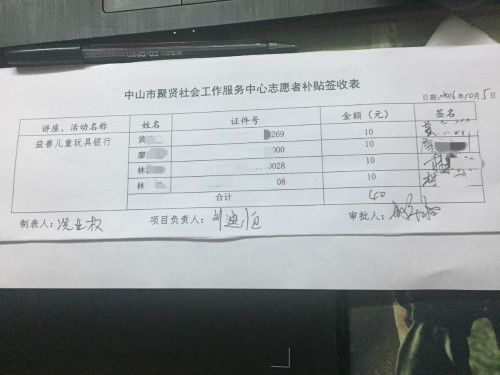 中山市聚贤社会工作服务中心志愿者补贴签收表
日期:2016年10月5日
讲座、活动名称 姓名 证件号 金额（元） 签名
益善儿童玩具银行 黄 269 10 黄
廖 000 10
林 0028 10 林
林 08 10 林
合计 40
制表人: 冼业权 项目负责人: 刘迪恒 审批人: